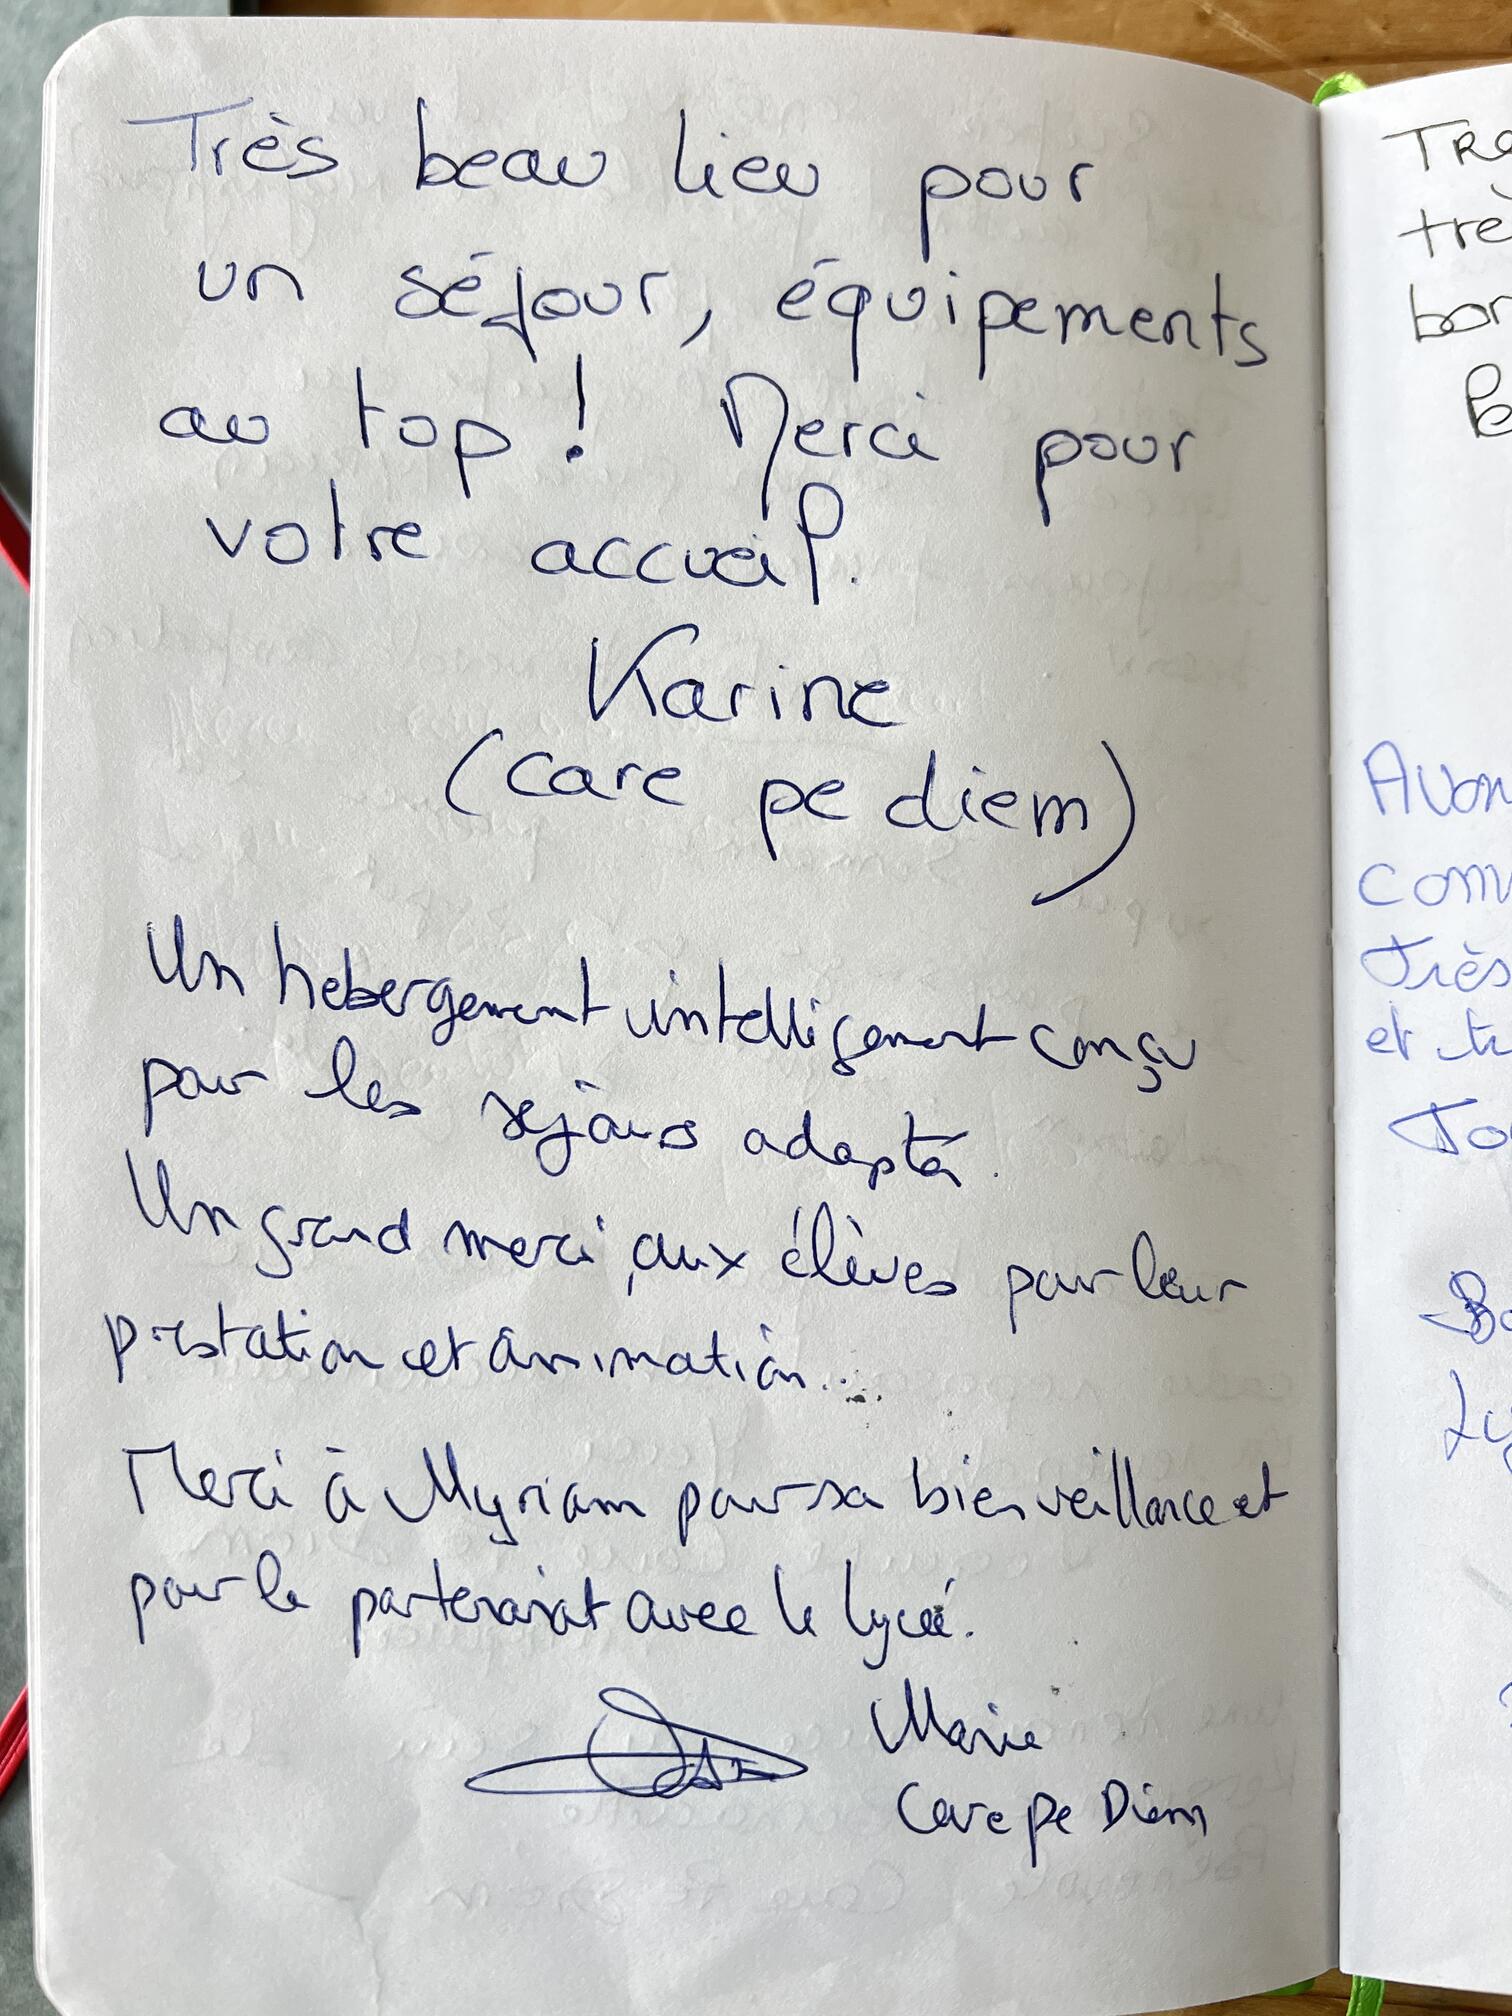 Très beau lieu pour
un séjour, équipements
au top ! Merci pour
votre accueil.
Karine
(care pe diem)
Un hebergement intelligement conçu
pour les sejours adaptés.
Un grand merci, aux élèves pour leur
prestation et animation...
Merci à Myriam pour sa bienveillance et
pour le partenariat avec le lycée.
Marie
Care pe Diem
Tre
trè
bon
Avon
com
Très
et tr
To
Bo